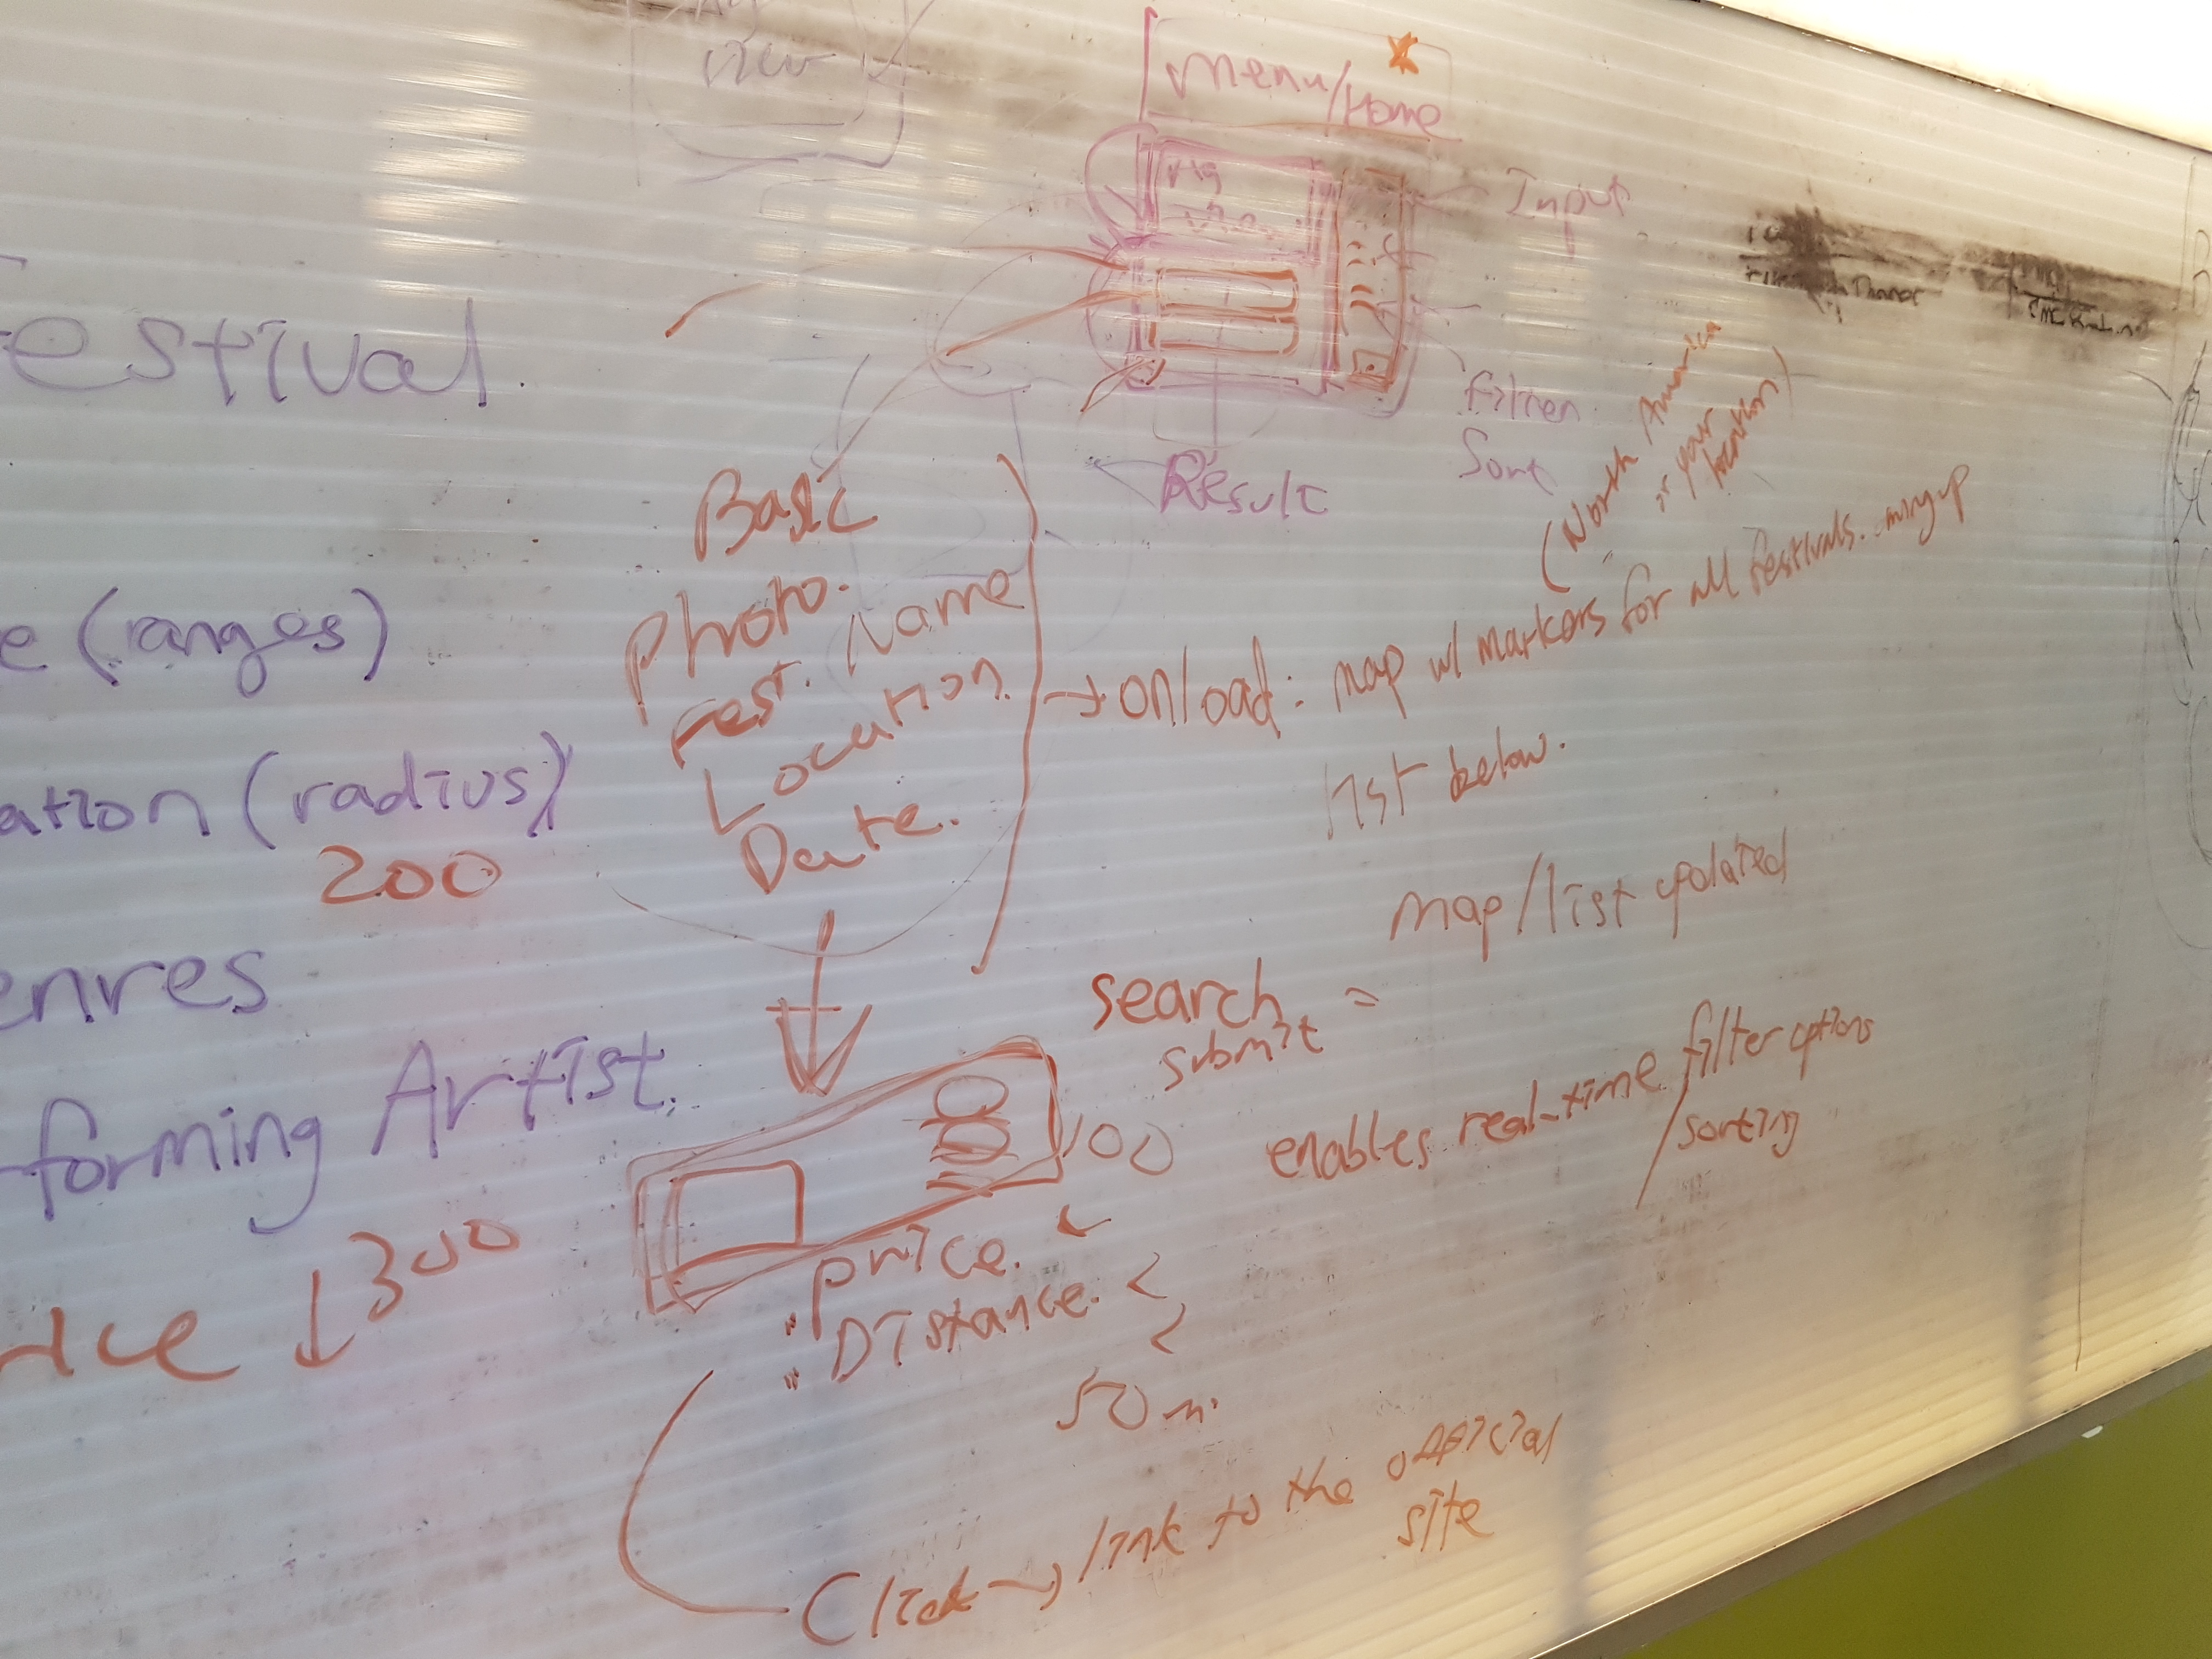 view
Menu/Home
Input
Result
Festival
e (ranges)
ation (radius)
200
enres
forming Artist.
rice ↓ 300
Basic
Photo.
Fest. Name
Location.
Date.
(North America
or your
location)
→ onload: map w/ markers for all festivals.
list below.
map/list updated
search =
submit
enables real-time filter options
/sorting
100
Price.
Distance. <
<
50 m.
Click → link to the official
site